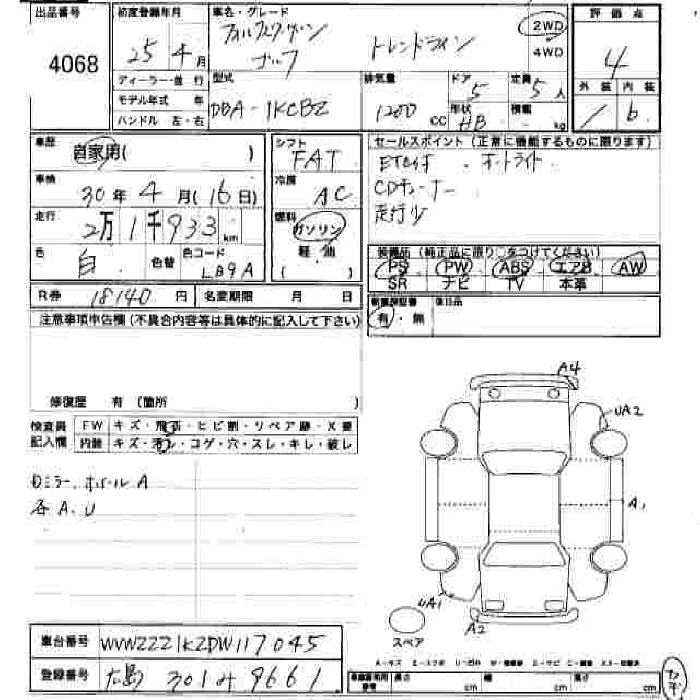 出品番号
4068
初度登録年月
25 4月
ディーラー・並行
モデル年式 年
ハンドル 左・右
車名・グレード
フォルクスワーゲン
ゴルフ トレンドライン
2WD
4WD
型式
DBA-1KCBZ
排気量
1200 CC
ドア
5
形状
HB
定員
5人
積載
kg
評価点
4
外装 内装
b
車歴
自家用( )
車検
30年4月(16日)
走行
2万1千933 km
色
白
色替
色コード
LB9A
シフト
FAT
冷房
AC
燃料
ガソリン
軽油
( )
セールスポイント(正常に機能するものに限ります)
ETC付 オートライト
CDチューナー
走行少
装備品(純正品に限り○をつけてください)
PS PW ABS エアB AW
SR ナビ TV 本革
R券 18140円 名変期限 月 日
有・無
注意事項申告欄(不具合内容等は具体的に記入して下さい)
修復歴 有(箇所 )
検査員
記入欄
FW キズ・飛石・ヒビ割・リペア跡・X要
内装 キズ・汚レ・コゲ・穴・スレ・キレ・破レ
ホイールA
各A.U
A4
UA2
A1
UA1
A2
スペア
車台番号 WVWZZZ1KZDW117045
登録番号 広島 301 み 9661
cm cm cm